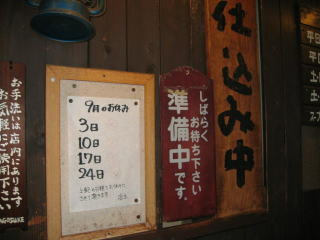 お手洗いは店内にあります
お気軽にご使用下さい
NAGASUKE
9月のお休み
3日
10日
17日
24日
しばらく
お待ち下さい
準備中です。
仕込み中
平日
平日
土・
土・